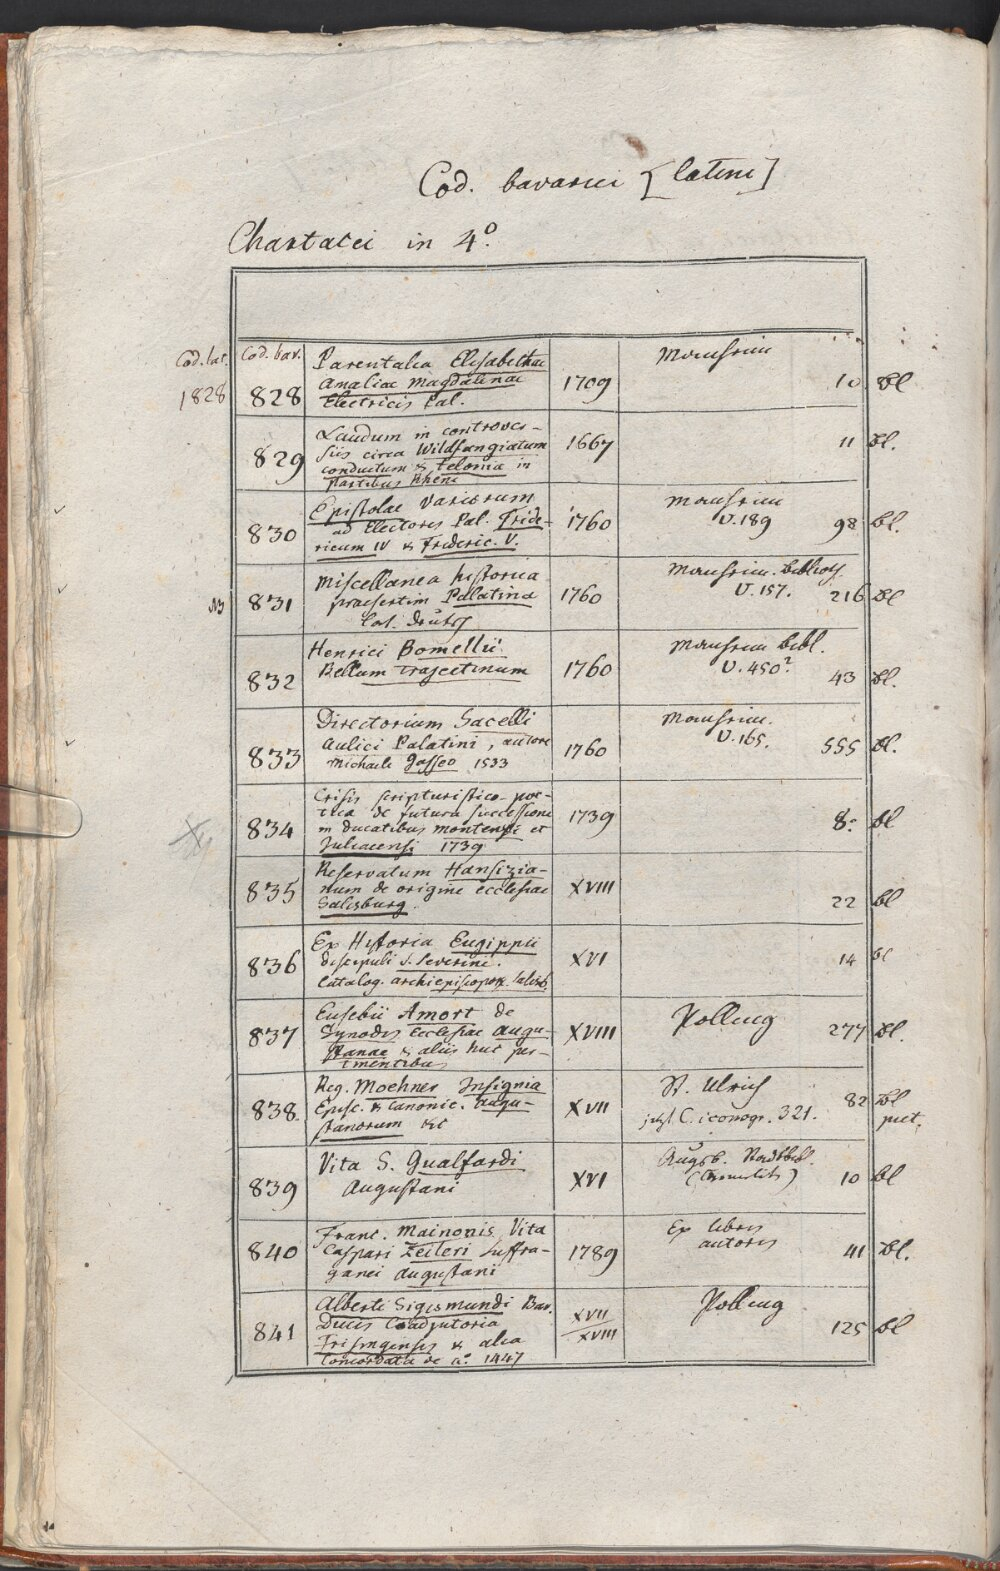 Cod. bavarici [latini]
Chartacei in 4º.
Cod. lat. Cod. bav.
1828 828 Parentalia Elisabethae
Amaliae Magdalenae
Electricis Pal.
1709 Manheim 10 bl
829 Laudum in controver-
siis circa Wildfangiatum
conductum & telonia in
partibus Rheni
1667 11 bl.
830 Epistolae variorum
ad Electores Pal. Fride-
ricum IV & Frideric. V.
1760 Manheim
U. 189 98 bl.
831 Miscellanea historica
praesertim Palatina
lat. deutsch
1760 Manheim. biblioth.
U. 157. 216 bl
832 Henrici Bomellii
Bellum Trajectinum
1760 Manheim bibl.
U. 450² 43 bl.
833 Directorium Sacelli
Aulici Palatini, autore
Michaele Gasseo 1533
1760 Manheim.
U. 165. 555 bl.
834 Crisis scripturistico-poe-
tica de futura successione
in ducatibus montensi et
Juliacensi 1739
1739 8. bl
835 Reservatum Hansizia-
num de origine ecclesiae
Salisburg.
XVIII 22 bl
836 Ex Historia Eugippii
discipuli S. Severini.
Catalog. archiepiscopor. Salisb.
XVI 14 bl
837 Eusebii Amort de
Synodis Ecclesiae Augu-
stanae & aliis huc per-
tinentibus
XVIII Polling 277 bl.
838. Reg. Moehner Insignia
Episc. & canonic. Augu-
stanorum &c
XVII St. Ulrich
jetzt C. iconogr. 321. 82 bl
pict.
839 Vita S. Gualfardi
Augustani
XVI Augsb. Stadtbibl.
10 bl
840 Franc. Mainonis Vita
Caspari Zeileri Suffra-
ganei Augustani
1789 Ex libris
autoris 41 bl.
841 Alberti Sigismundi Bav.
Ducis Coadjutoria
Frisingensis & alia
Concordata de aº. 1447
XVII
XVIII Polling 125 bl